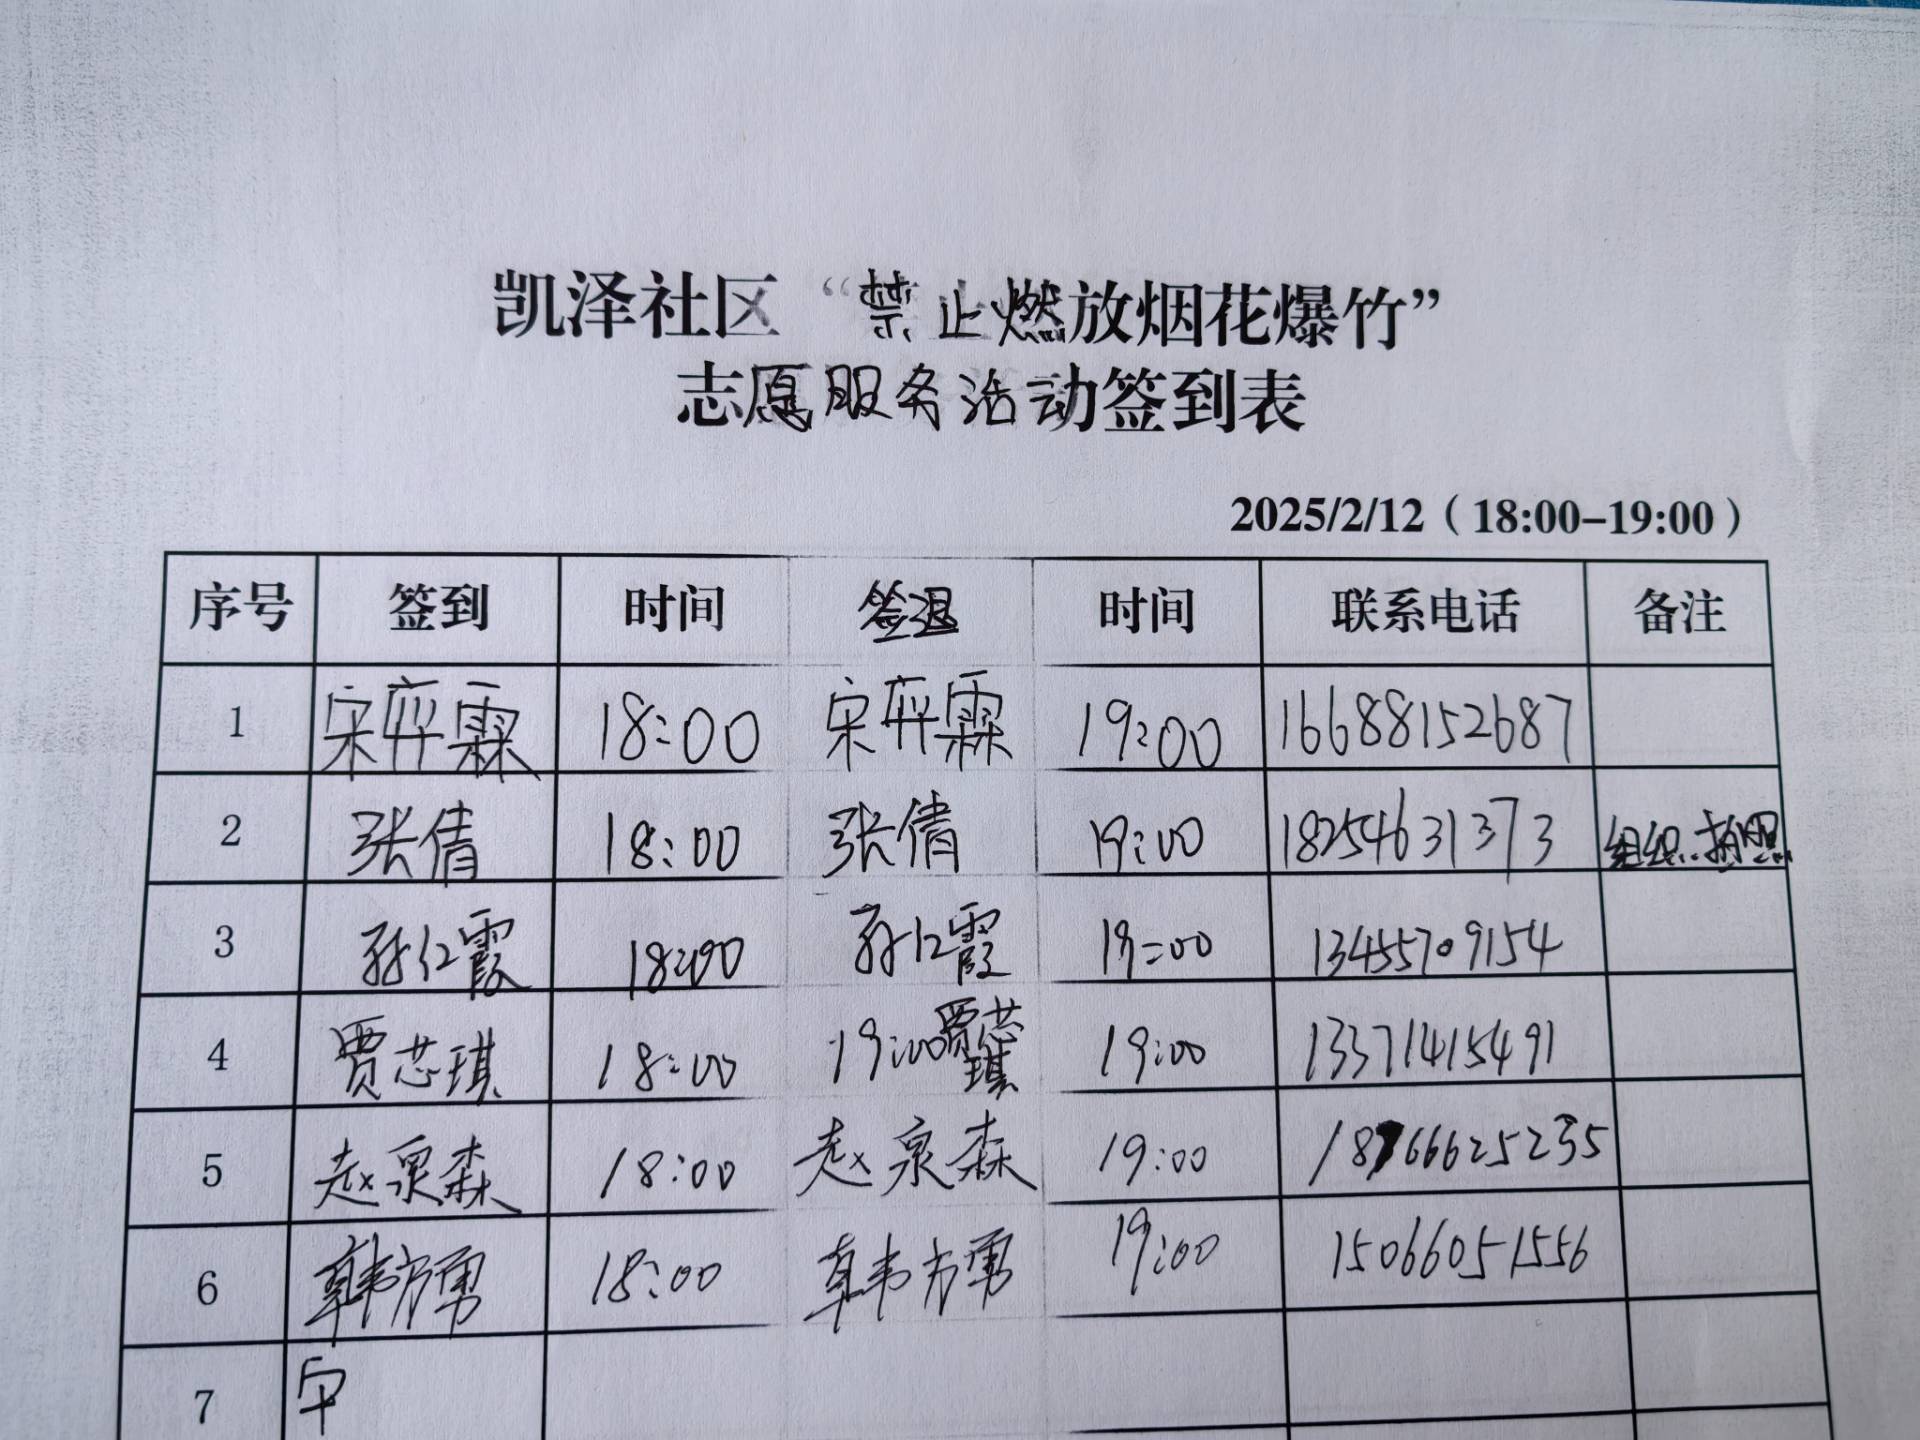 凯泽社区“禁止燃放烟花爆竹”
志愿服务活动签到表
2025/2/12（18:00-19:00）
序号 签到 时间 签退 时间 联系电话 备注
1 宋弈霖 18:00 宋弈霖 19:00 16688152687
2 张倩 18:00 张倩 19:00 18254631373 组织.拍照
3 孙仁霞 18:00 孙仁霞 19:00 13455709154
4 贾芯琪 18:00 19:00贾芯琪 19:00 13371415491
5 赵泉森 18:00 赵泉森 19:00 18766625235
6 韩方勇 18:00 韩方勇 19:00 15066051556
7